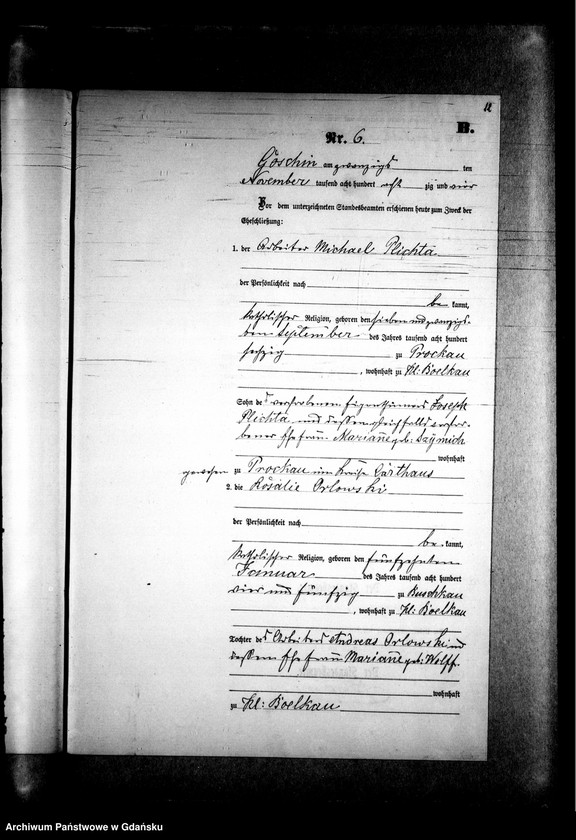 12
B.
Nr. 6.
Göschin am zwanzigsten
November tausend acht hundert acht zig und vier
Vor dem unterzeichneten Standesbeamten erschienen heute zum Zweck der
Eheschließung:
1. der Arbeiter Michael Plichta
der Persönlichkeit nach
be kannt,
katholischer Religion, geboren den sieben und zwanzigs-
ten September des Jahres tausend acht hundert
sechzig zu Prockau
, wohnhaft zu Kl: Boelkau
Sohn des verstorbenen Eigenthümers Joseph
Plichta und dessen gleichfalls verstor-
bener Ehefrau Mariane geb: Szymich
wohnhaft
gewesen zu Prockau im Kreise Carthaus
2. die Rosalie Orlowski
der Persönlichkeit nach
be kannt,
katholischer Religion, geboren den fünfzehnten
Januar des Jahres tausend acht hundert
vier und fünfzig zu Buschkau
, wohnhaft zu Kl: Boelkau
Tochter des Arbeiters Andreas Orlowski und
dessen Ehefrau Mariane geb: Wolff
wohnhaft
zu Kl: Boelkau
Archiwum Państwowe w Gdańsku